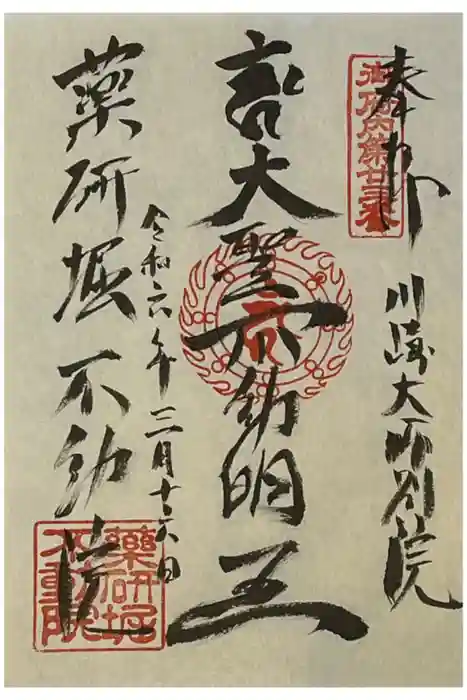 奉拝
御府内第廿三番
川崎大師別院
大聖不動明王
令和六年三月十六日
薬研堀不動院
薬研堀不動院